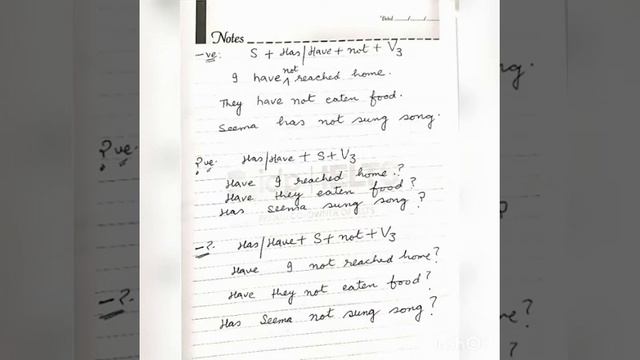 Date ___/___/___
Notes
-ve: S + Has/Have + not + V3
I have not reached home.
They have not eaten food.
Seema has not sung song.
?ve: Has/Have + S + V3
Have I reached home.?
Have they eaten food?
Has Seema sung song?
-?. Has/Have + S + not + V3
Have I not reached home?
Have they not eaten food?
Has Seema not sung song?